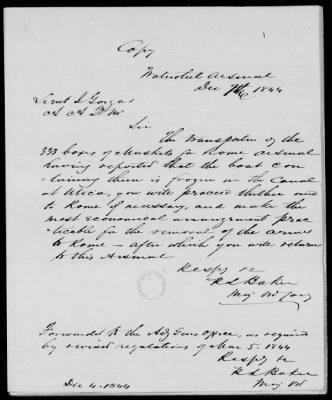 Copy
Watervliet Arsenal
Dec 7th, 1844
Lieut J Gorgas
A A D M
Sir
The transporter of the
333 boxes of Muskets for Rome Arsenal
having reported that the boat con-
taining them is frozen in the Canal
at Utica, you will proceed thither and
to Rome if necessary, and make the
most economical arrangement prac
ticable for the removal of the arms
to Rome – after which you will return
to this Arsenal
Respy &c
R L Baker
Maj Ord
Forwarded to the Adj Gens Office, as required
by revised regulations of Mar 5. 1844
Respy &c
R L Baker
Maj Ord
Dec 4. 1844